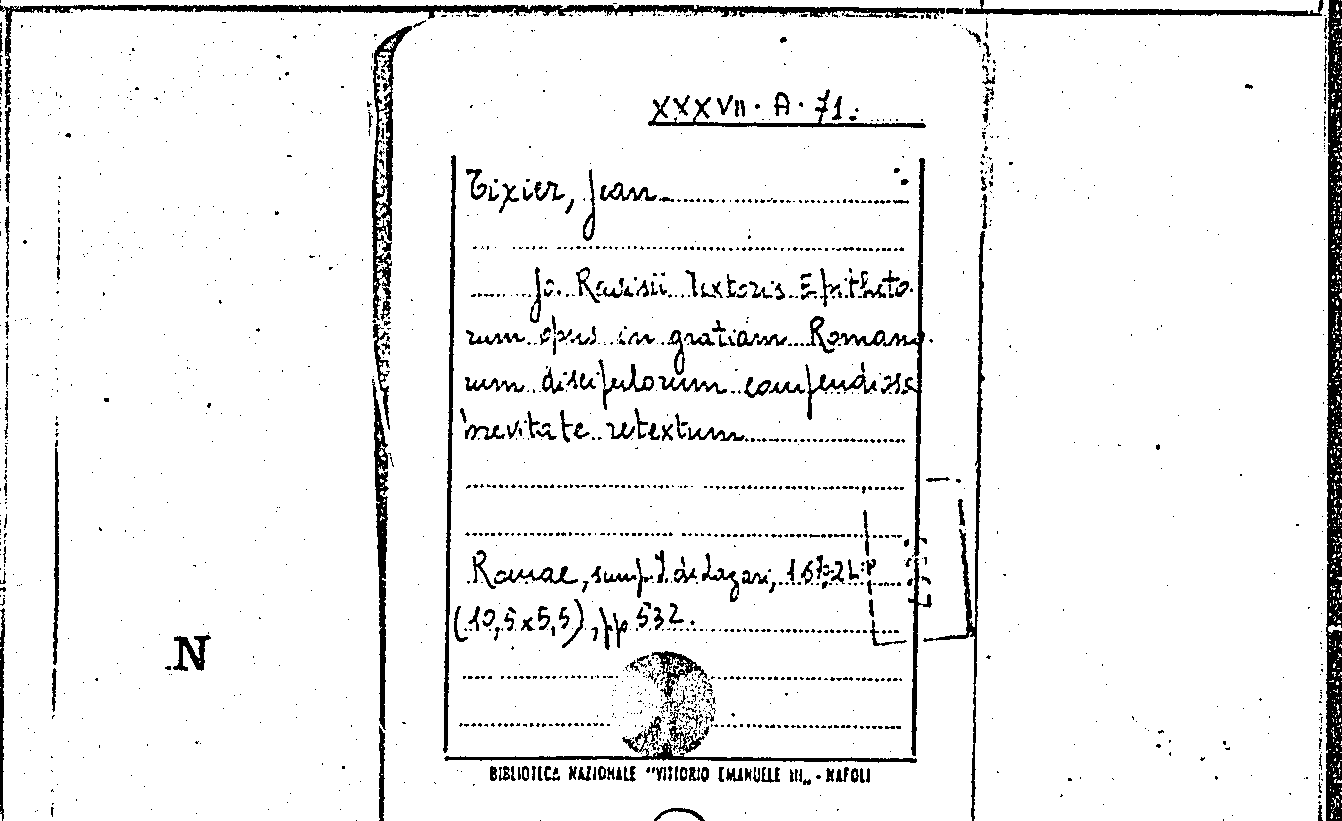 XXXVII. A. 71.
Tixier, Jean
Jo. Ravisii Textoris Epitheto
rum opus in gratiam Romano.
rum discipulorum compendiosa
brevitate retextum
Romae, sumpt. J. de Lazari,
(10,5x5,5), pp 532.
N
BIBLIOTECA NAZIONALE "VITTORIO EMANUELE III„ - NAPOLI